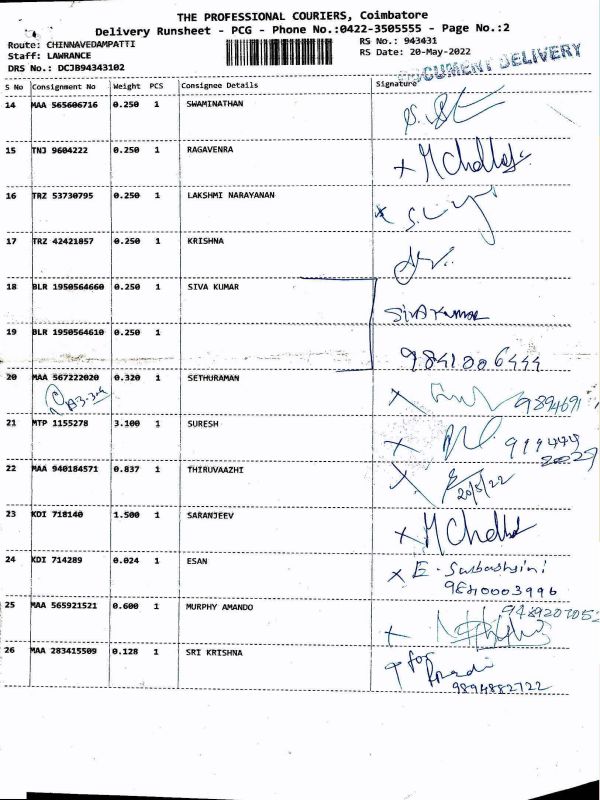 THE PROFESSIONAL COURIERS, Coimbatore
Delivery Runsheet - PCG - Phone No.:0422-3505555 - Page No.:2
Route: CHINNAVEDAMPATTI RS No.: 943431
Staff: LAWRANCE RS Date: 20-May-2022
DRS No.: DCJB94343102 DOCUMENT DELIVERY
S No Consignment No Weight PCS Consignee Details Signature
14 MAA 565606716 0.250 1 SWAMINATHAN
15 TNJ 9604222 0.250 1 RAGAVENRA
16 TRZ 53730795 0.250 1 LAKSHMI NARAYANAN
17 TRZ 42421857 0.250 1 KRISHNA
18 BLR 1950564660 0.250 1 SIVA KUMAR
SIVA Kumar
19 BLR 1950564610 0.250 1
9841006444
20 MAA 567222020 0.320 1 SETHURAMAN
9894691
21 MTP 1155278 3.100 1 SURESH
919444
22 MAA 940184571 0.837 1 THIRUVAAZHI
20/5/22
23 KDI 718140 1.500 1 SARANJEEV
24 KDI 714289 0.024 1 ESAN
E. Subashini
9840003996
25 MAA 565921521 0.600 1 MURPHY AMANDO
26 MAA 283415509 0.128 1 SRI KRISHNA
for
9894882722